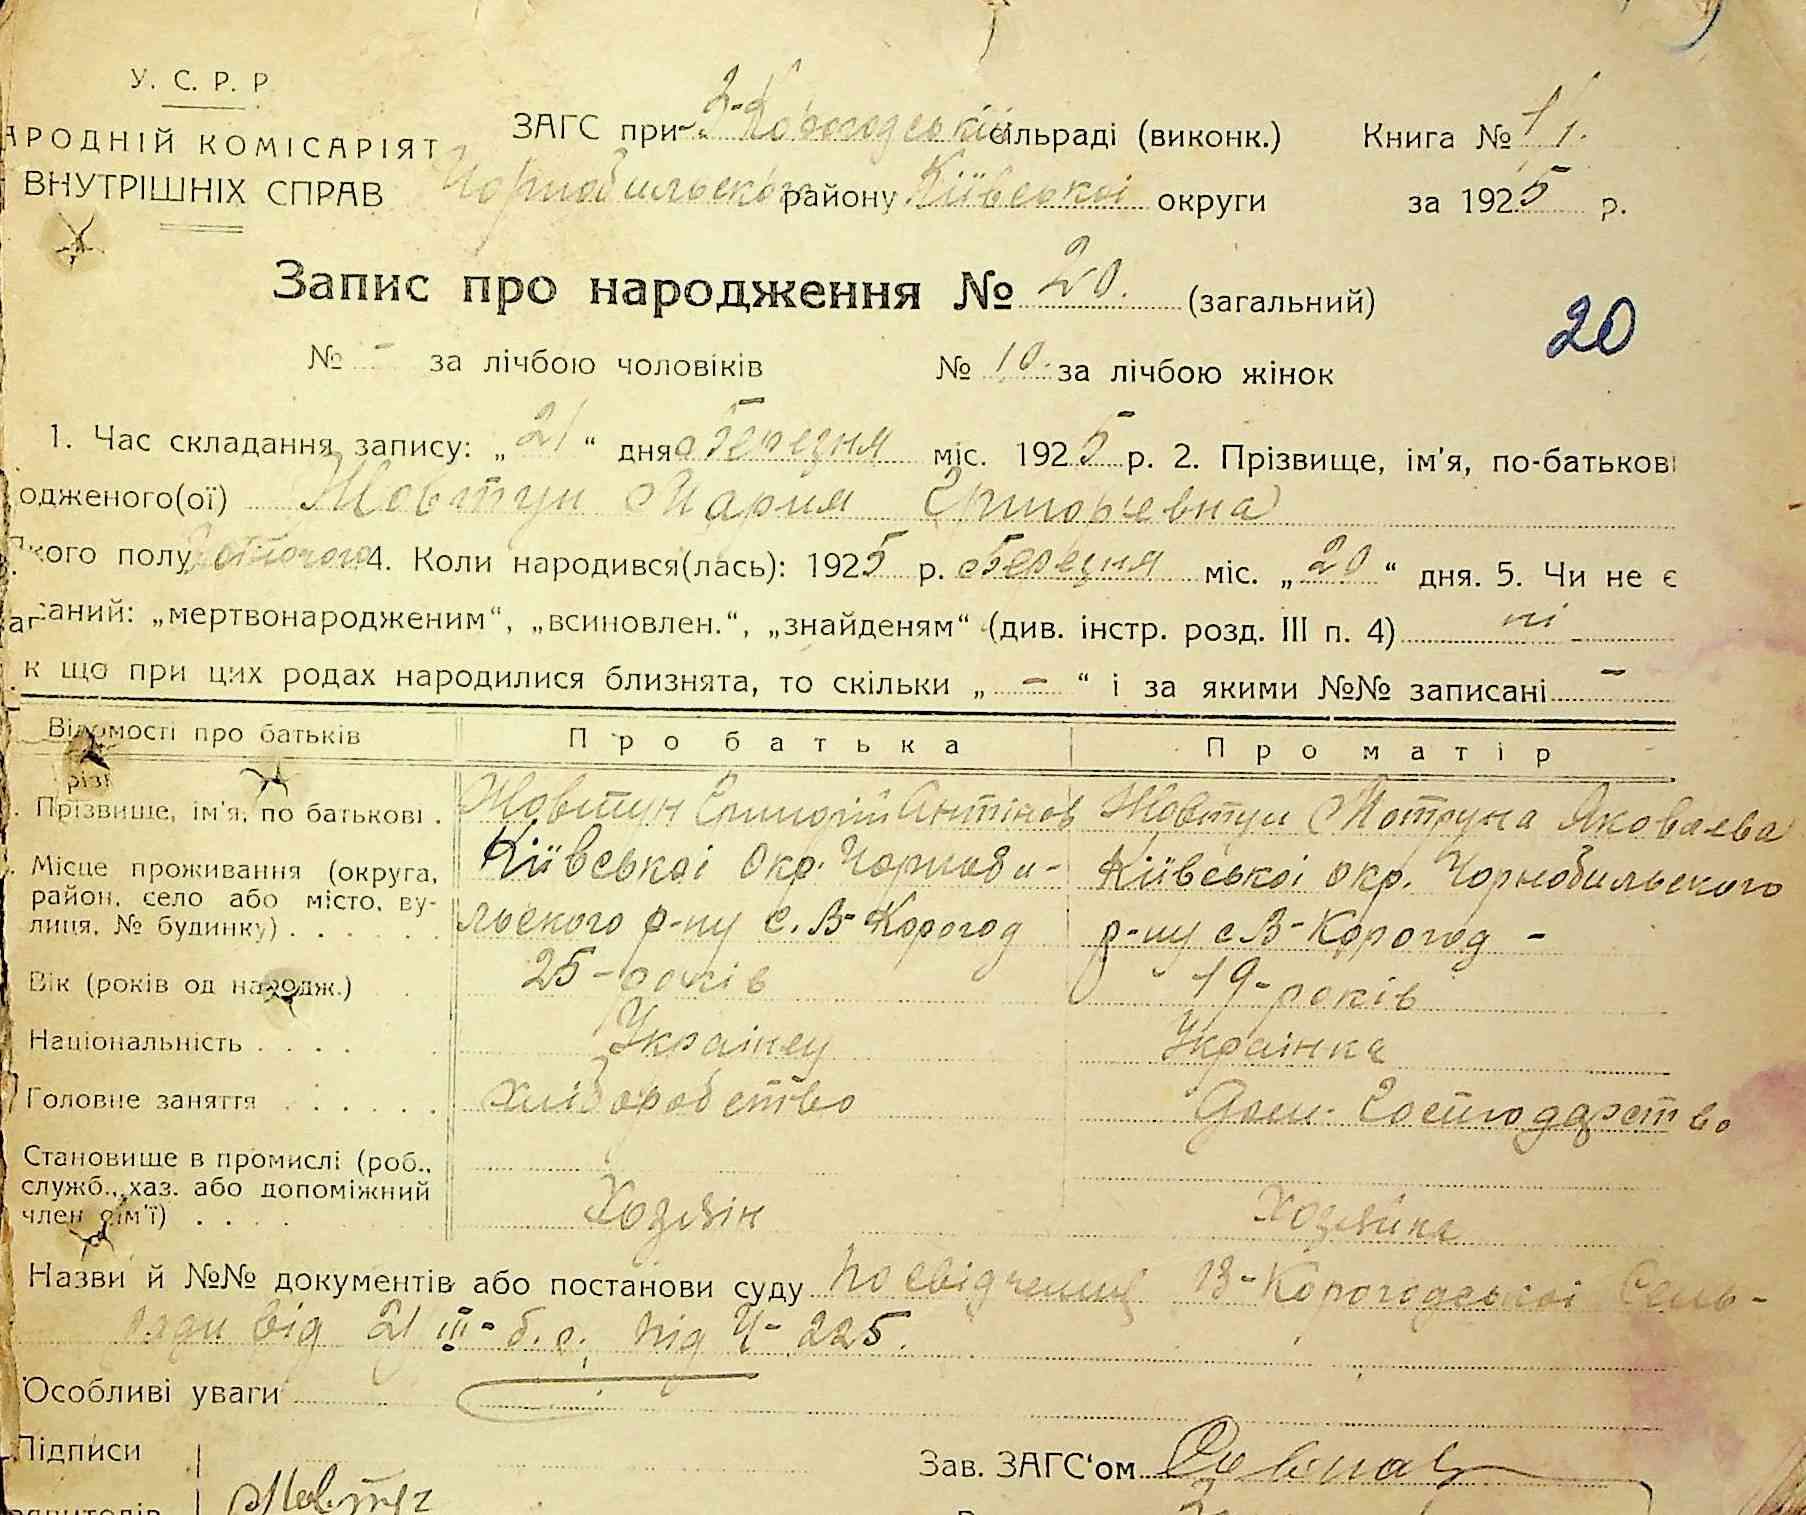 У. С. Р. Р
АРОДНІЙ КОМІСАРІЯТ
ВНУТРІШНІХ СПРАВ
ЗАГС при Корогодській сільраді (виконк.) Книга №
Чорнобильского району Київської округи за 1925 р.
Запис про народження № 20. (загальний)
20
№ - за лічбою чоловіків № 10. за лічбою жінок
1. Час складання запису: „21“ дня березня міс. 1925 р. 2. Прізвище, ім'я, по-батькові
одженого(ої) Жовтун Мария Григорьевна
кого полу жіночого 4. Коли народився(лась): 1925 р. березня міс. „20“ дня. 5. Чи не є
саний: „мертвонародженим“, „всиновлен.“, „знайденям“ (див. інстр. розд. III п. 4) ні
к що при цих родах народилися близнята, то скільки „ - “ і за якими №№ записані -
Відомості про батьків Про батька Про матір
Прізвище, ім'я, по батькові . Жовтун Григорій Антінов Жовтун Мотруна Яковлева
Місце проживання (округа, Київської окр. Чорноби- Київської окр. Чорнобильского
район, село або місто, ву- льского р-ну с. В-Корогод р-ну с В-Корогод -
лиця, № будинку) . . . . . .
Вік (років од народж.) 25-років 19-років
Національність . . . . Українец Українка
Головне заняття . . . . . . хліборобство Дом. Господарство
Становище в промислі (роб.,
служб., хаз. або допоміжний
член сім'ї) . . . . Хозяїн хозяйка
Назви й №№ документів або постанови суду посвідчення В-Корогодської Сель-
ради від 21 III - б. р. під Ч- 225.
Особливі уваги
Підписи
Зав. ЗАГС'ом
Жовтун